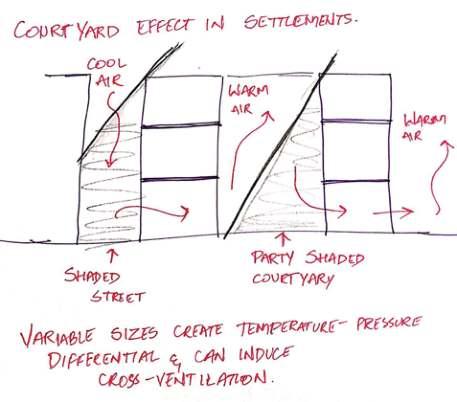 COURTYARD EFFECT IN SETTLEMENTS.
COOL
AIR
WARM
AIR
WARM
AIR
SHADED
STREET
PARTY SHADED
COURTYARY
VARIABLE SIZES CREATE TEMPERATURE-PRESSURE
DIFFERENTIAL & CAN INDUCE
CROSS-VENTILATION.